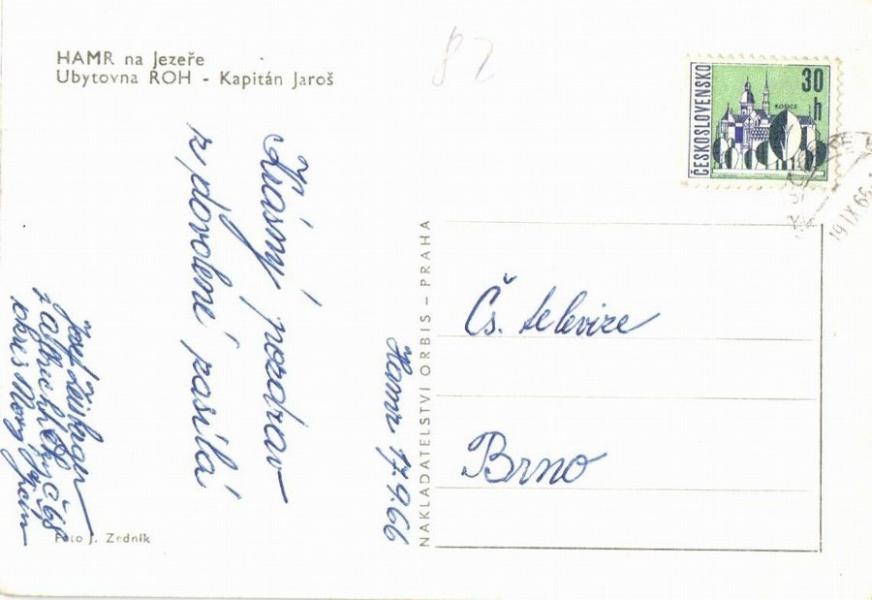 HAMR na Jezeře
Ubytovna ROH - Kapitán Jaroš
82
ČESKOSLOVENSKO
30
h
KOŠICE
19 IX 66
Krásný pozdrav
z dovolené posílá
Josef
č 68
okres Nový Jičín
Hamr 17.9.66
NAKLADATELSTVÍ ORBIS – PRAHA
Čs. televize
Brno
Foto J. Zedník